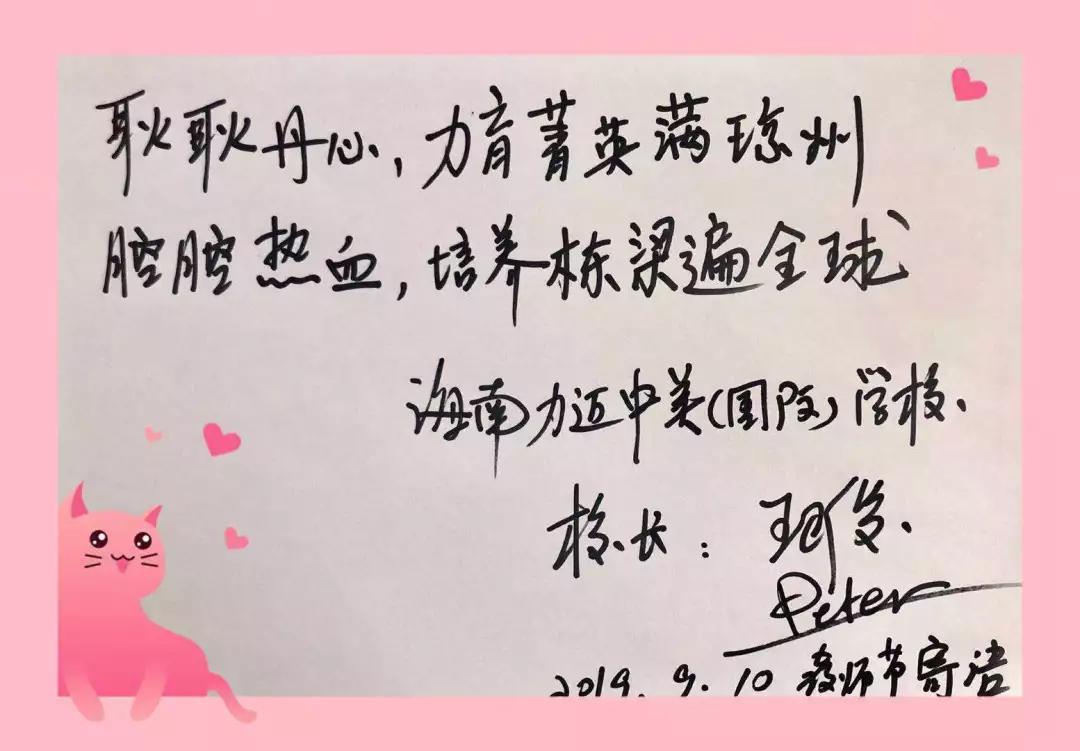 耿耿丹心,力育菁英满琼州
腔腔热血,培养栋梁遍全球
海南力迈中美(国际)学校.
校长:珂俊.
Peter
2019.9.10 教师节寄语